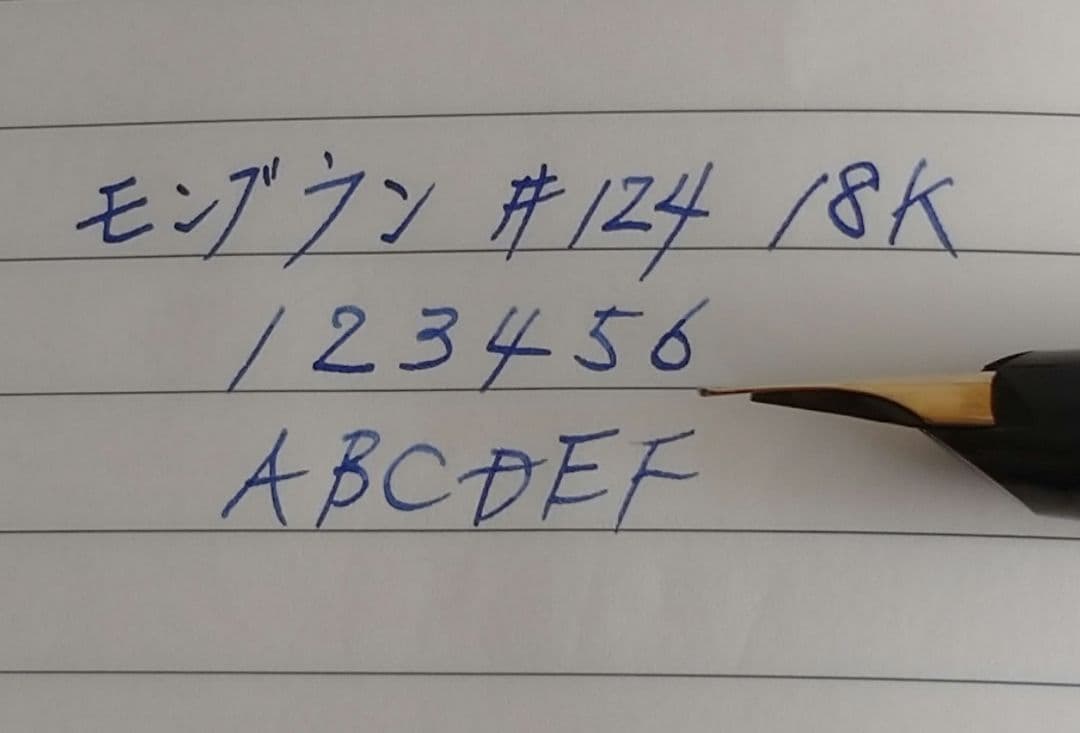 モンブラン #124 18K
1 2 3 4 5 6
A B C D E F